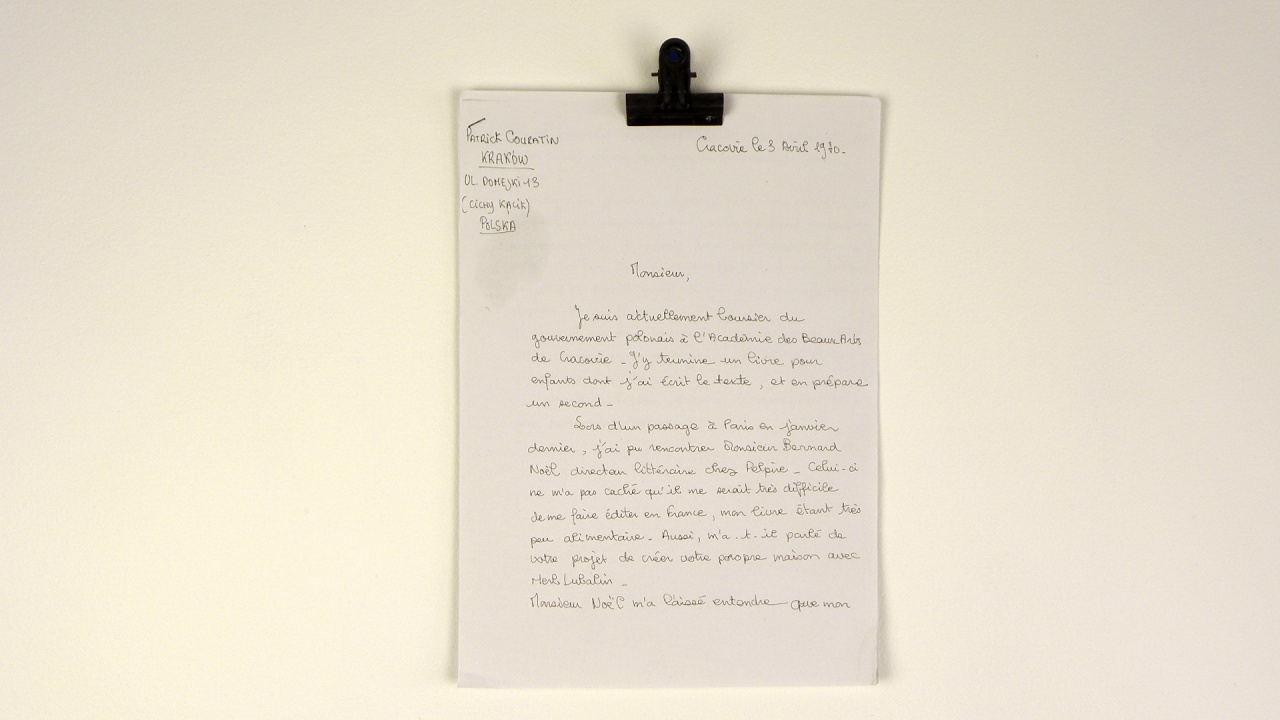 PATRICK COURATIN
KRAKÓW
UL. DOMEJKI 13
(CICHY KĄCIK)
POLSKA
Cracovie le 3 Avril 1970.
Monsieur,
Je suis actuellement boursier du
gouvernement polonais à l'Académie des Beaux Arts
de Cracovie - J'y termine un livre pour
enfants dont j'ai écrit le texte, et en prépare
un second -
Lors d'un passage à Paris en janvier
dernier, j'ai pu rencontrer Monsieur Bernard
Noël directeur littéraire chez Delpire - Celui-ci
ne m'a pas caché qu'il me serait très difficile
de me faire éditer en France, mon livre étant très
peu alimentaire - Aussi, m'a-t-il parlé de
votre projet de créer votre propre maison avec
Herb Lubalin -
Monsieur Noël m'a laissé entendre que mon